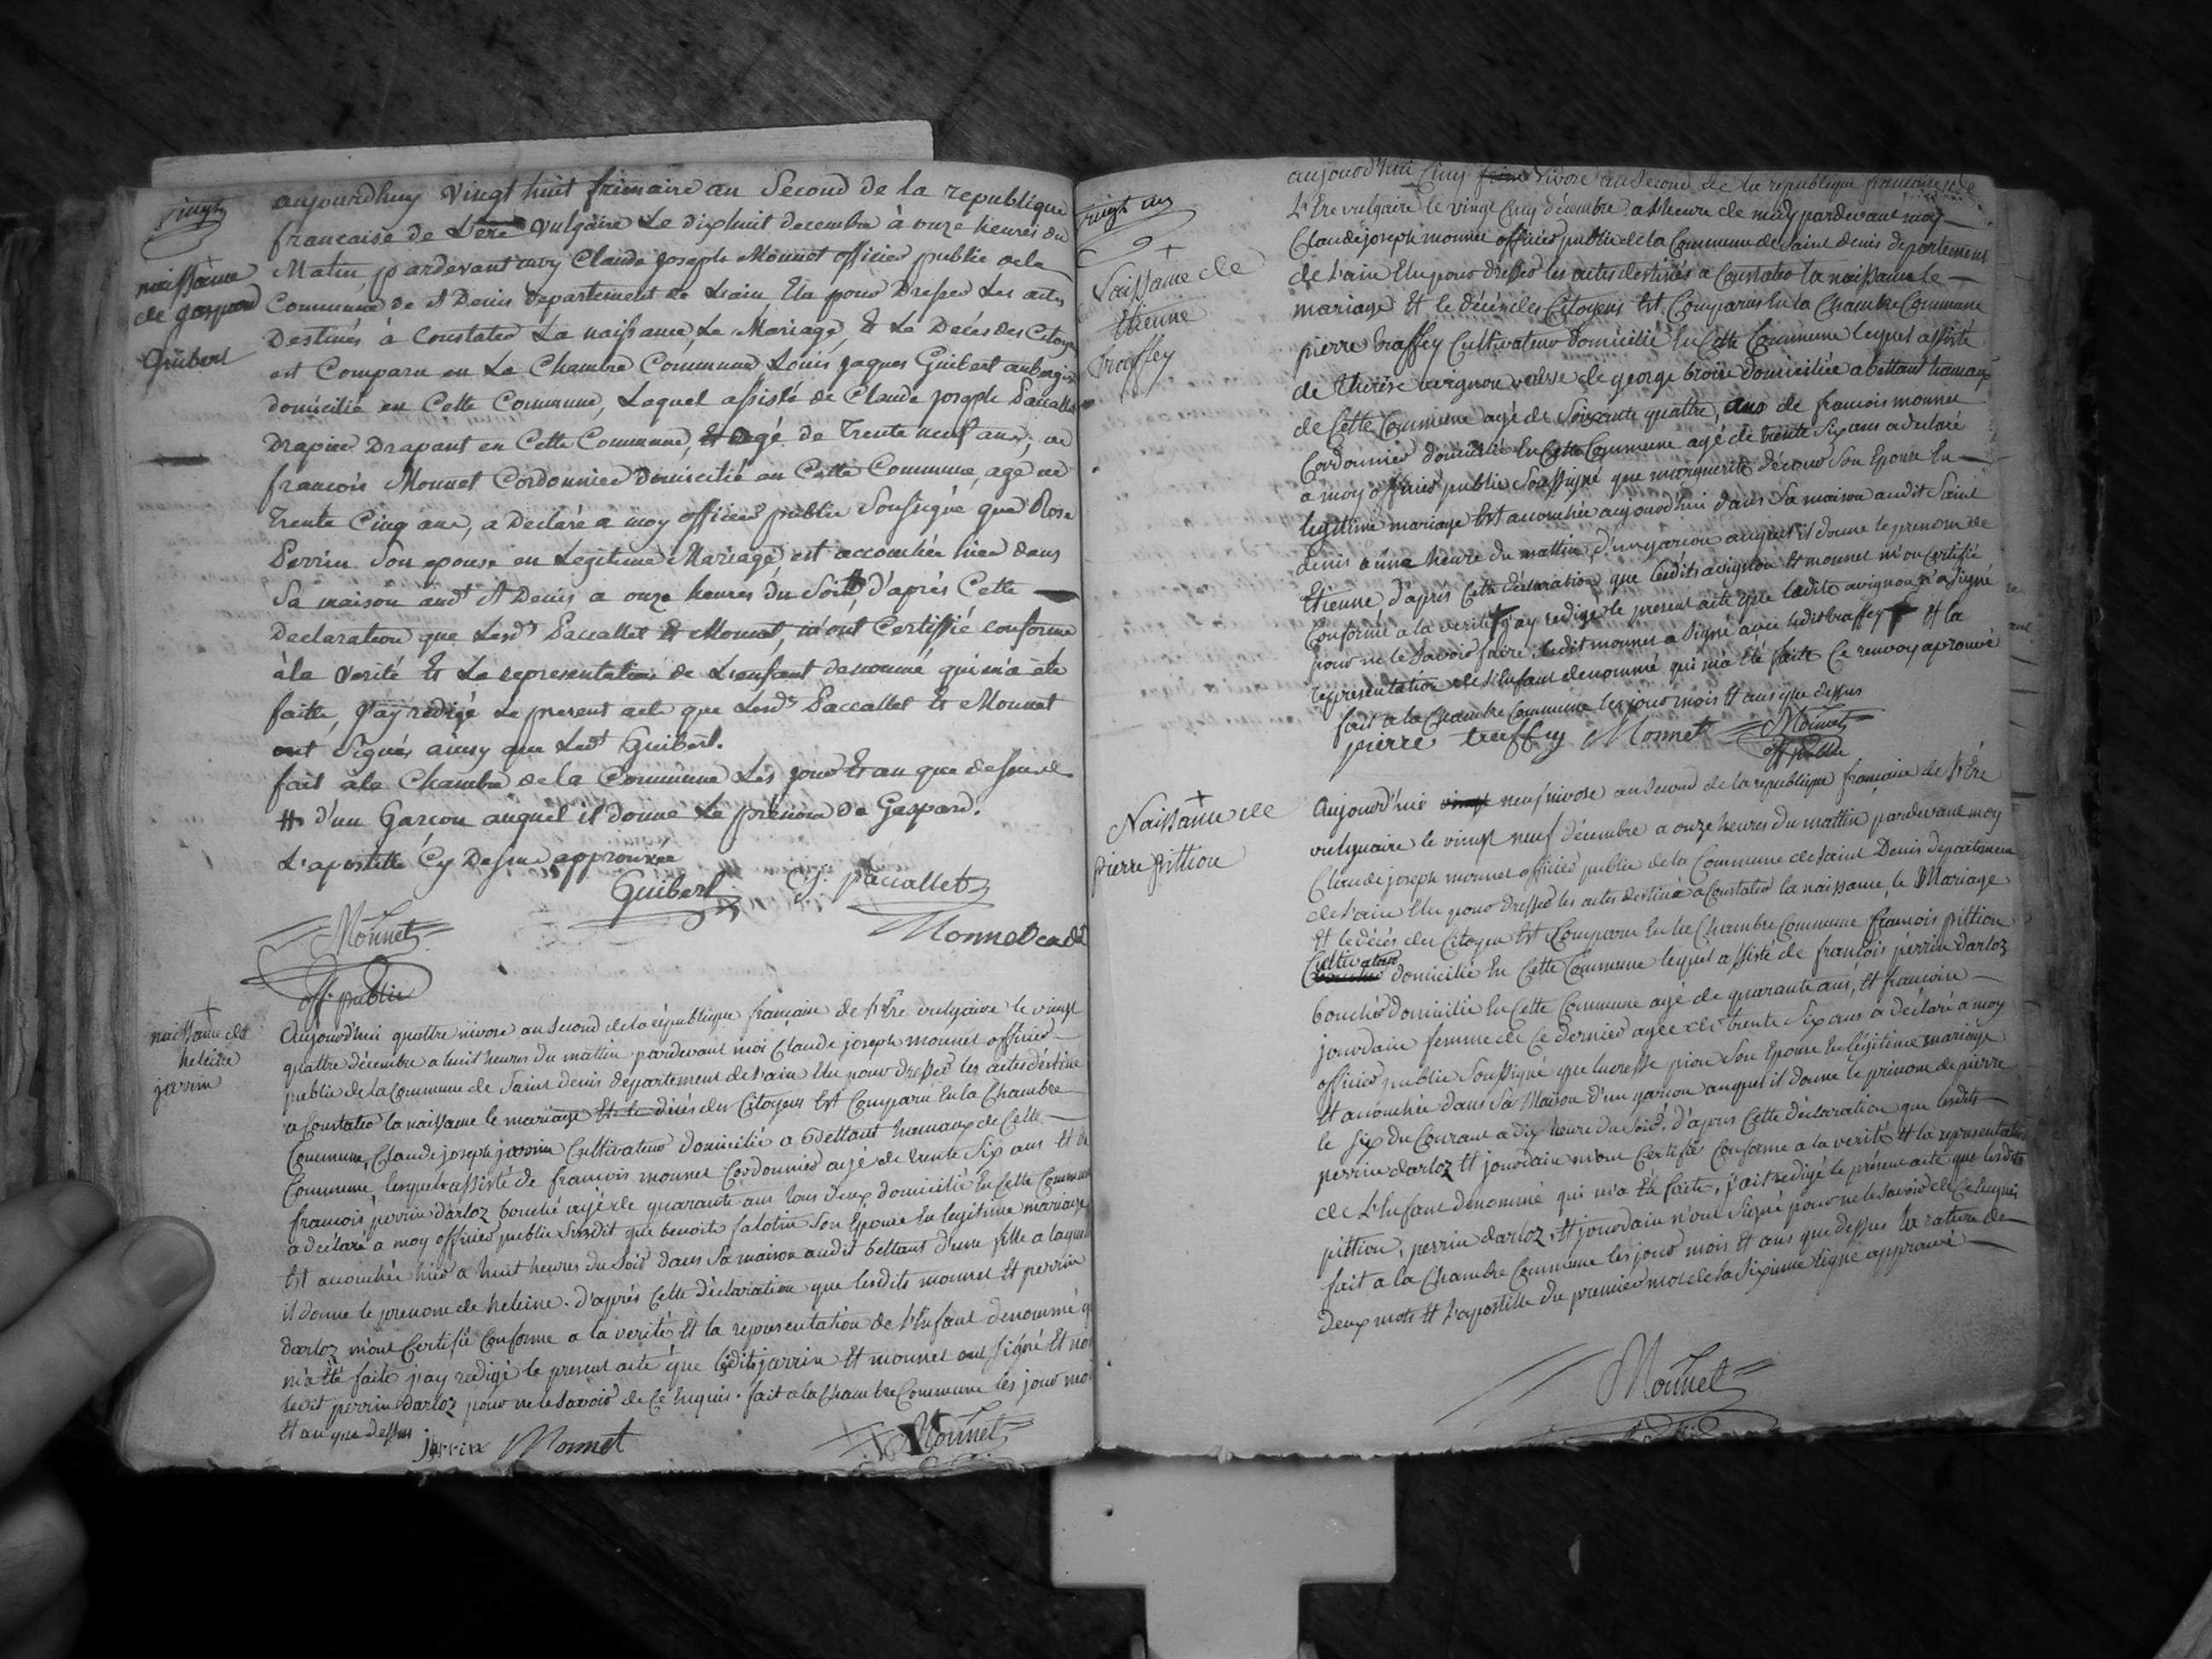 vingt
naissance
de gaspard
Guibert
aujourdhuy vingt huit frimaire an Second de la republique
francaise de L'ere vulgaire Le dixhuit decembre à onze heures du
Matin, pardevant moy Claude Joseph Monnet officier public de la
Commune de St Denis departement de L'ain Elu pour Dresser Les actes
Destinés à Constater La naissance, Le Mariage, & Le Decés des Citoyens
est Comparu en La Chambre Commune Louis Jaques Guibert aubergiste
domicilié en Cette Commune, Lequel assisté de Claude Joseph Paccallet
Drapier Drapant en Cette Commune, agé de Trente neuf ans, de
francois Monnet Cordonnier Domicilié en Cette Commune, agé de
Trente Cinq ans, a Declaré a moy officier public Soussigné que Rose
Perrin Son epouse en Legitime Mariage, est accouchée hier dans
Sa maison aud't St Denis a onze heures du Soir # d'aprés Cette
Declaration que Lesd's Paccallet & Monnet, m'ont Certiffié conforme
à la verité & La representation de L'enfant denommé qui m'a été
faitte, J'ay redigé Le present acte que Lesd's Paccallet & Monnet
ont Signés ainsy que Led't Guibert.
fait à la Chambre de la Commune Les jour & an que dessus
# d'un Garcon auquel il donne Le prénom de Gaspard.
L'apostille Cy Dessus approuvée
Guibert C. J. Paccallet
Monnet Monnet cadet
off. public
naissance de
heleine
jarrin
Aujourd'hui quattre nivose an Second de la république française de L'Ere vulgaire le vingt
quattre décembre a huit heures du mattin pardevant moi Claude joseph monnet officier
public de la Commune de Saint denis departement de L'ain Elu pour dresser les actes destiné
a Constater la naissance le mariage Et le décés des Citoyens Est Comparu En la Chambre
Commune, Claude joseph jarrin Cultivateur domicilié a Bettant hamaux de Cette
Commune, lequel assisté de francois monnet Cordonnier agé de trente Six ans Et de
francois perrin darloz bouché agé de quarante ans tous deux domicilié En Cette Commune
a déclaré a moy officier public Susdit que benoite falotin Son Epouse En legitime mariage
Est accouchée hier a huit heures du Soir dans Sa maison audit bettant d'une fille a laquelle
il donne le prenom de heleine. d'aprés Cette déclaration que lesdits monnet Et perrin
darloz m'ont Certifié Conforme a la verité Et la représentation de L'Enfant denommé qui
m'a Eté faite j'ay redigé le present acte que lesdits jarrin Et monnet ont Signé Et non
ledit perrin darloz pour ne le Savoir de Ce Enquis. fait a la Chambre Commune les jour mois
Et an que dessus
jarrin Monnet Monnet
vingt un
Naissance de
Etienne
truffey
aujourd'hui Cinq nivose an Second de la république française de
L'Ere vulgaire le vingt Cinq décembre a L'heure de midy pardevant moy
Claude joseph monnet officier public de la Commune de Saint denis departement
de L'ain Elu pour dresser les actes destinés a Constater la naissance le
mariage Et le décés des Citoyens Est Comparu En la Chambre Commune
pierre truffey Cultivateur domicilié En Cette Commune lequel assisté
de therese avignon veuve de george broire domiciliée a bettant hamaux
de Cette Commune agé de Soixante quattre, ans de francois monnet
Cordonnier domicilié En Cette Commune agé de trente Six ans a déclaré
a moy officier public Soussigné que marguerite Son Epouse En
legitime mariage Est accouchée aujourd'hui dans Sa maison audit Saint
denis a une heure du mattin, d'un garcon auquel il donne le prenom de
Etienne, d'aprés Cette déclaration que lesdits avignon Et monnet m'on Certifié
Conforme a la verité j'ay redigé le present acte que ladite avignon n'a Signé
pour ne le Savoir faire, ledit monnet a Signé avec ledit truffey Et la
représentation de L'Enfant denommé qui m'a Eté faite Ce renvoy aprouvé
fait a la Chambre Commune les jour mois Et ans que dessus
pierre truffey Monnet Monnet
off public
Naissance de
pierre pittion
Aujourd'hui neuf nivose an Second de la republique française de L'Ere
vulguaire le vingt neuf décembre a onze heures du mattin pardevant moy
Claude joseph monnet officier public de la Commune de Saint Denis departement
de L'ain Elu pour dresser les actes destiné a Constater la naissance, le Mariage
Et le décés des Citoyen Est Comparu En la Chambre Commune françois pittion
Cultivateur domicilié En Cette Commune lequel assisté de françois perrin darloz
bouché domicilié En Cette Commune agé de quarante ans, Et francoise
jourdain femme de Ce dernier agée de trente Six ans a déclaré a moy
officier public Soussigné que lucresse pion Son Epouse En légitime mariage
Et accouchée dans Sa Maison d'un garcon auquel il donne le prénom de pierre
le Six du Courant a dix heure du Soir. d'apres Cette déclaration que lesdits
perrin darloz Et jourdain m'ont Certifié Conforme a la verité Et la représentation
de L'Enfant dénommé qui m'a Eté faite, j'ait redigé le présent acte que lesdits
pittion, perrin darloz, Et jourdain n'ont Signé pour ne le Savoir de Ce Enquis
fait a la Chambre Commune les jour mois Et ans que dessus la rature de
deux mots Et L'apostille du premier mot de la Sixieme ligne approuvé
Monnet